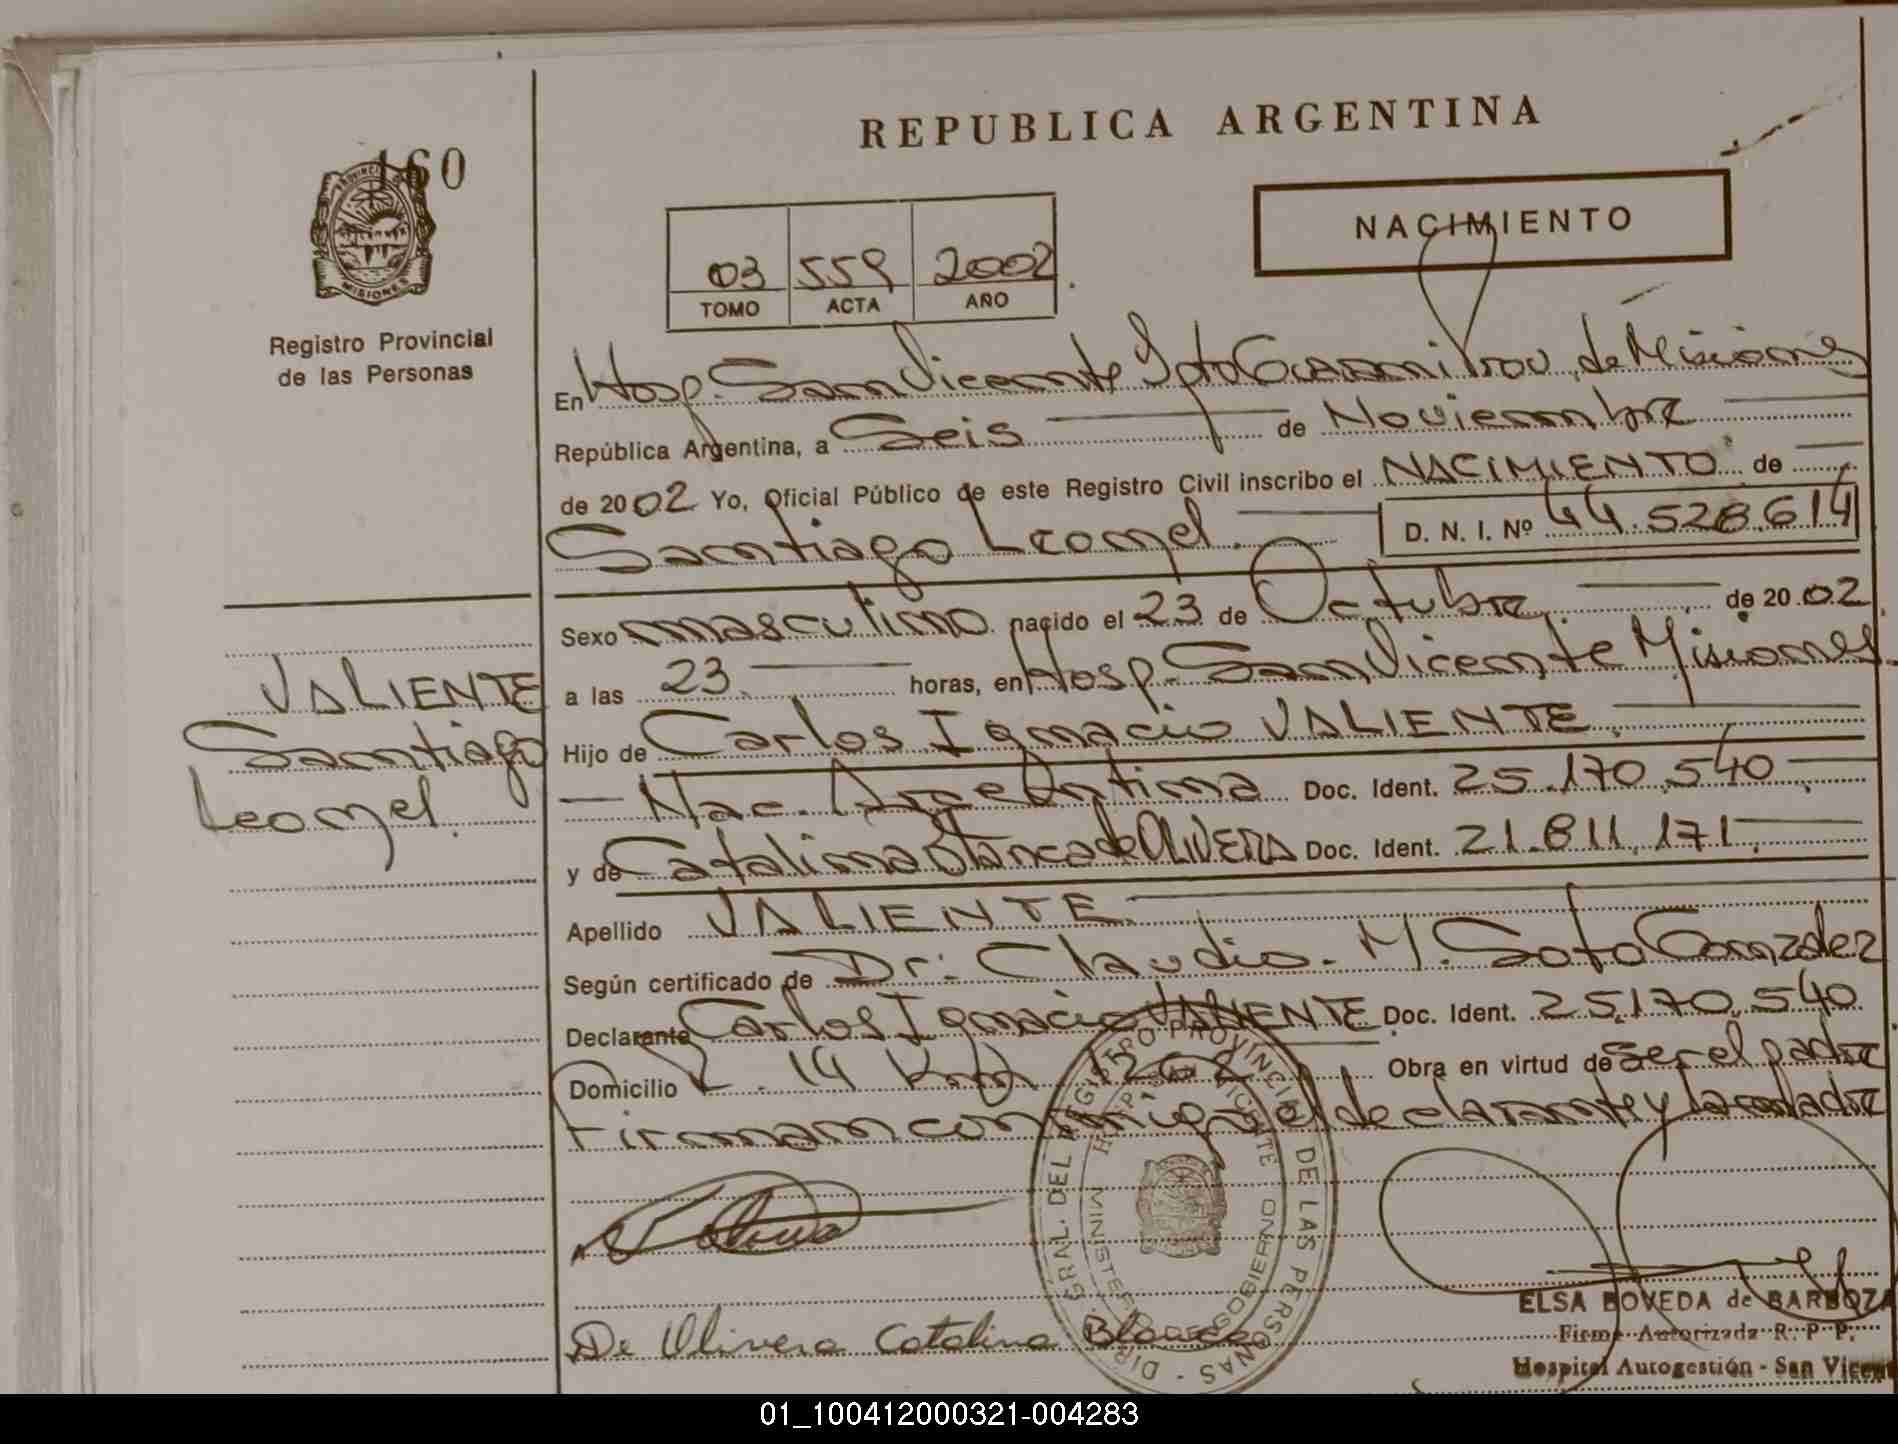 160
PROVINCIA DE MISIONES
Registro Provincial
de las Personas
REPUBLICA ARGENTINA
NACIMIENTO
03 559 2002
TOMO ACTA AÑO
En Hosp. San Vicente Dpto Guaraní Prov. de Misiones
República Argentina, a Seis de Noviembre
de 2002 Yo, Oficial Público de este Registro Civil inscribo el NACIMIENTO de
Santiago Leonel. D. N. I. Nº 44.528.614
Sexo masculino nacido el 23 de Octubre de 2002
a las 23 horas, en Hosp. San Vicente Misiones.
Hijo de Carlos Ignacio VALIENTE.
Nac. Argentina Doc. Ident. 25.170.540
y de Catalina Blanca de OLIVERA Doc. Ident. 21.811.171.
Apellido VALIENTE
Según certificado de Dr. Claudio. M. Soto Gonzalez
Declarante Carlos Ignacio VALIENTE Doc. Ident. 25.170.540
Domicilio L. 14 Km 1262 Obra en virtud de ser el padre
Firman conmigo el declarante y la madre
VALIENTE
Santiago
Leonel.
De Olivera Catalina Blanca
DIR. GRAL. DEL REGISTRO PROVINCIAL DE LAS PERSONAS
HOSPITAL SAN VICENTE
MINISTERIO DE GOBIERNO
ELSA BOVEDA de BARBOZA
Firma Autorizada R. P. P.
Hospital Autogestión - San Vicente
01_100412000321-004283